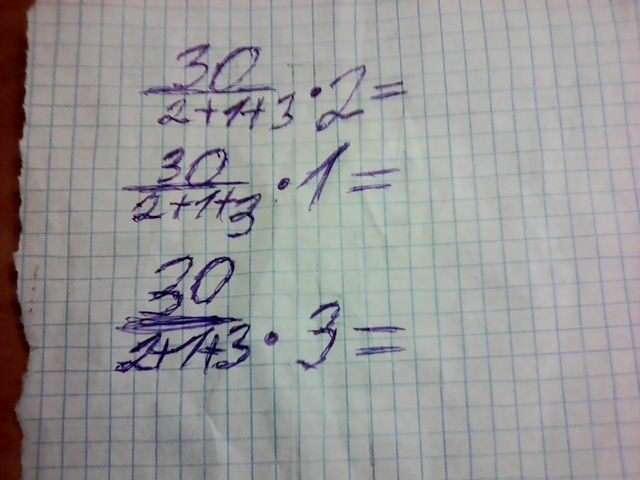 30/2+1+3 · 2 =
30/2+1+3 · 1 =
30/2+1+3 · 3 =